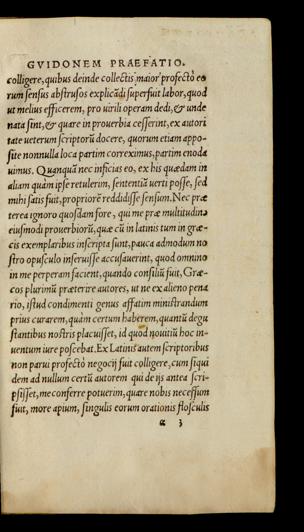 GVIDONEM PRAEFATIO.
colligere, quibus deinde collectis, maior profectò eo
rum sensus abstrusos explicãdi superfuit labor, quod
ut melius efficerem, pro uirili operam dedi, & unde
nata sint, & quare in prouerbia cesserint, ex autori
tate ueterum scriptorũ docere, quorum etiam appo-
site nonnulla loca partim correximus, partim enoda
uimus. Quanquã nec inficias eo, ex his quædam in
aliam quàm ipse retulerim, sententiã uerti posse, sed
mihi satis fuit, propriorẽ reddidisse sensum. Nec præ
terea ignoro quosdam fore, qui me præ multitudine
eiusmodi prouerbiorũ, quæ cũ in latinis tum in græ-
cis exemplaribus inscripta sunt, pauca admodum no
stro opusculo inseruisse accusauerint, quod omnino
in me perperam facient, quando consiliũ fuit, Græ-
cos plurimũ præterire autores, ut ne ex alieno pena
rio, istud condimenti genus affatim ministrandum
prius curarem, quàm certum haberem, quantũ degu
stantibus nostris placuisset, id quod nouitiũ hoc in-
uentum iure poscebat. Ex Latinis autem scriptoribus
non parui profectò negocij fuit colligere, cum siqui
dem ad nullum certũ autorem qui de ijs antea scri-
psisset, me conferre potuerim, quare nobis necessum
fuit, more apium, singulis eorum orationis flosculis
a 3